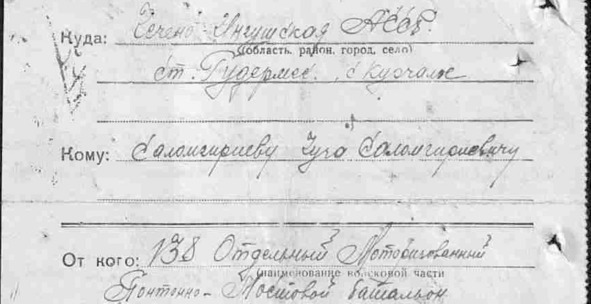 Куда: Чечено Ингушская АССР.
(область, район, город, село)
ст. Гудермес. с Курчалж
Кому: Саломгириеву Чуго Саломгириевичу
От кого: 138 Отдельный Мотоизованний
(наименование войсковой части
Понтонно-Мостовой батальон